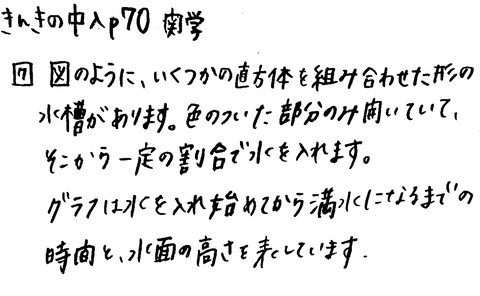 きんきの中入p70 関学
7 図のように、いくつかの直方体を組み合わせた形の
水槽があります。色のついた部分のみ開いていて、
そこから一定の割合で水を入れます。
グラフは水を入れ始めてから満水になるまでの
時間と、水面の高さを表しています.